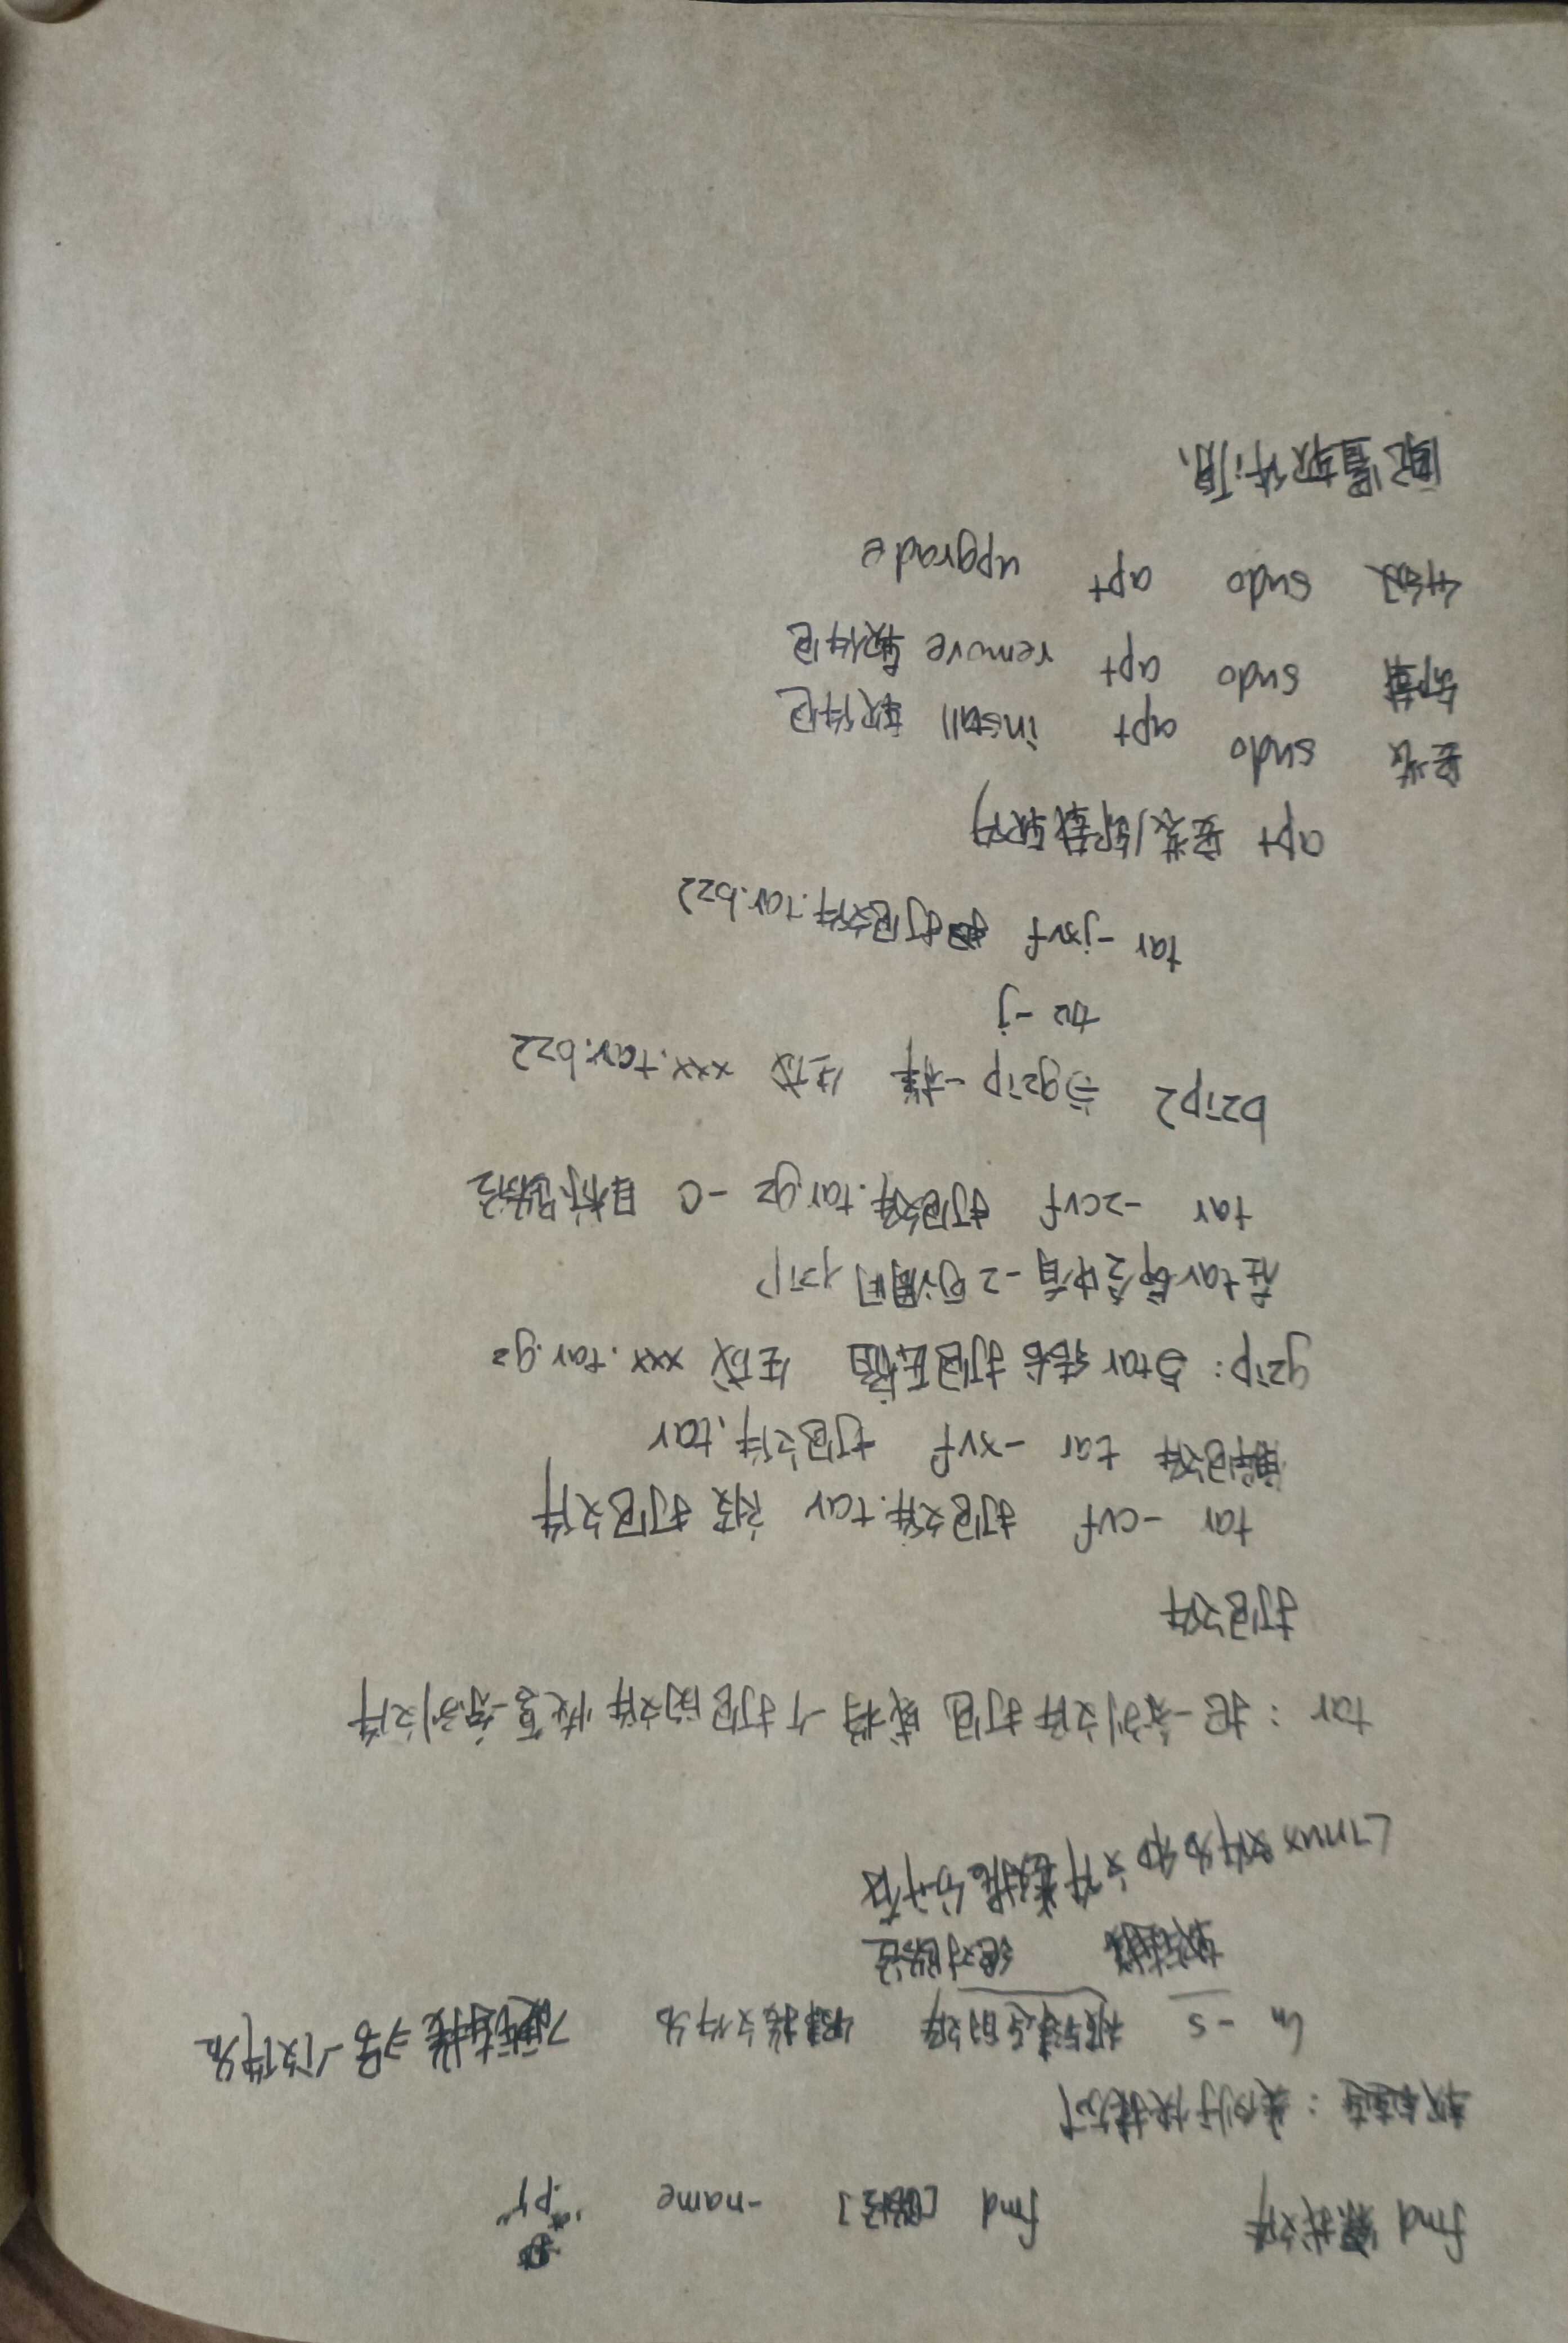 find 查找文件 find [路径] -name "*.py"
软链连：类例于快捷方式
ln -s 被链连的文件 链接文件名 硬链接 另一个文件名
软链接 绝对路径
Linux文件名和文件数据分开存
tar：把一系列文件打包 或将一个打包的文件恢复一系列文件
打包文件
tar -cvf 打包文件.tar 被打包文件
解包文件 tar -xvf 打包文件.tar
gzip：与tar结合打包压缩 生成 xxx.tar.gz
在tar命令中有-z可调用gzip
tar -zcvf 打包文件.tar.gz -C 目标路径
bzip2 与gzip一样 生成 xxx.tar.bz2
加 -j
tar -jxvf 打包文件.tar.bz2
apt 安装/卸载软件
安装 sudo apt install 软件包
卸载 sudo apt remove 软件包
升级 sudo apt upgrade
配置软件源